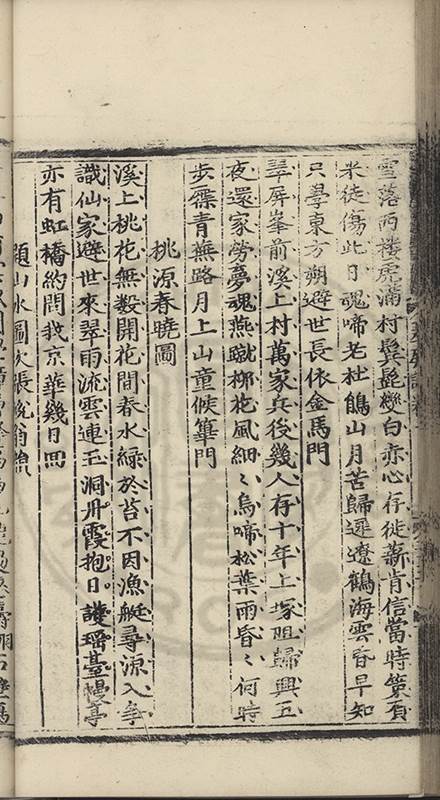 雪落西樓虎滿村鬢髭變白亦心存徙薪肯信當時策有
米徒傷此日魂啼老杜鵑山月苦歸遲遼鶴海雲昏早知
只學東方朔避世長依金馬門
翠屏峯前溪上村萬家兵後幾人存十年上塚阻歸興五
夜還家勞夢魂燕蹴桞花風細〻烏啼松葉雨昏〻何時
步屧青蕪路月上山童候蓽門
桃源春曉圖
溪上桃花無數開花間春水綠於苔不因漁艇尋源入爭
識仙家避世來翠雨流雲連玉洞丹霞抱日護瑶臺幔亭
亦有虹橋約問我京華幾日回
題山水圖次張